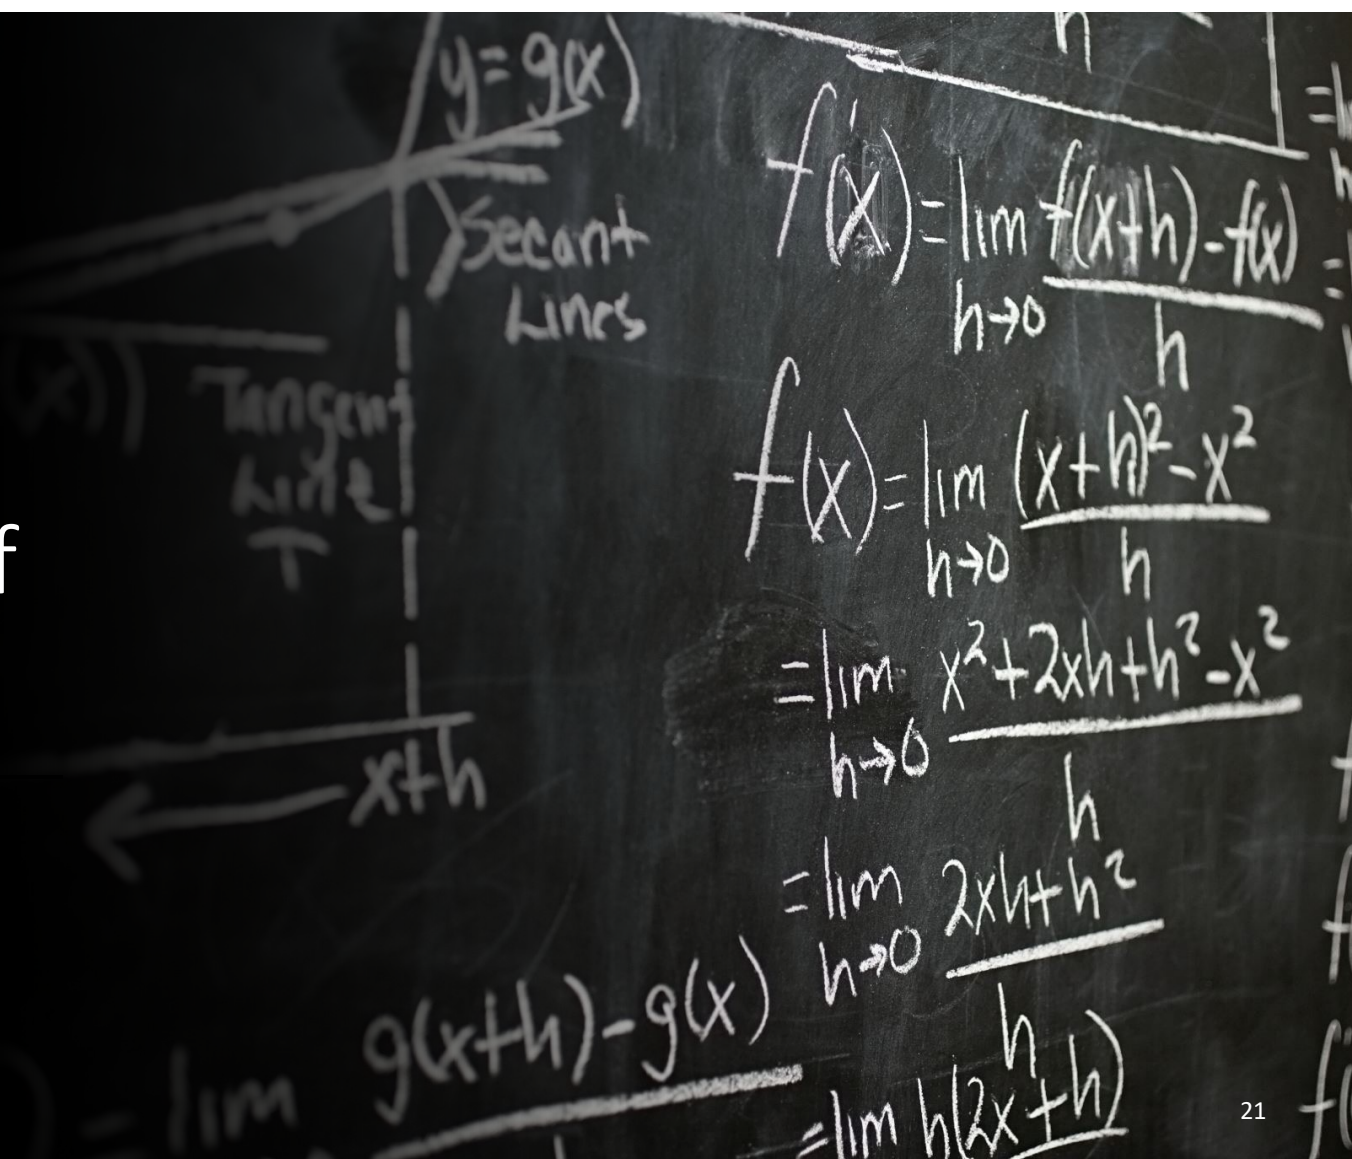 y = g(x)
Secant
Lines
(x))
Tangent
Line
T
x+h
g(x+h) - g(x)
= lim
h
f'(x) = lim f(x+h) - f(x)
h→0 h
f(x) = lim (x+h)² - x²
h→0 h
= lim x² + 2xh + h² - x²
h→0 h
= lim 2xh + h²
h→0 h
= lim h(2x+h)
f
21